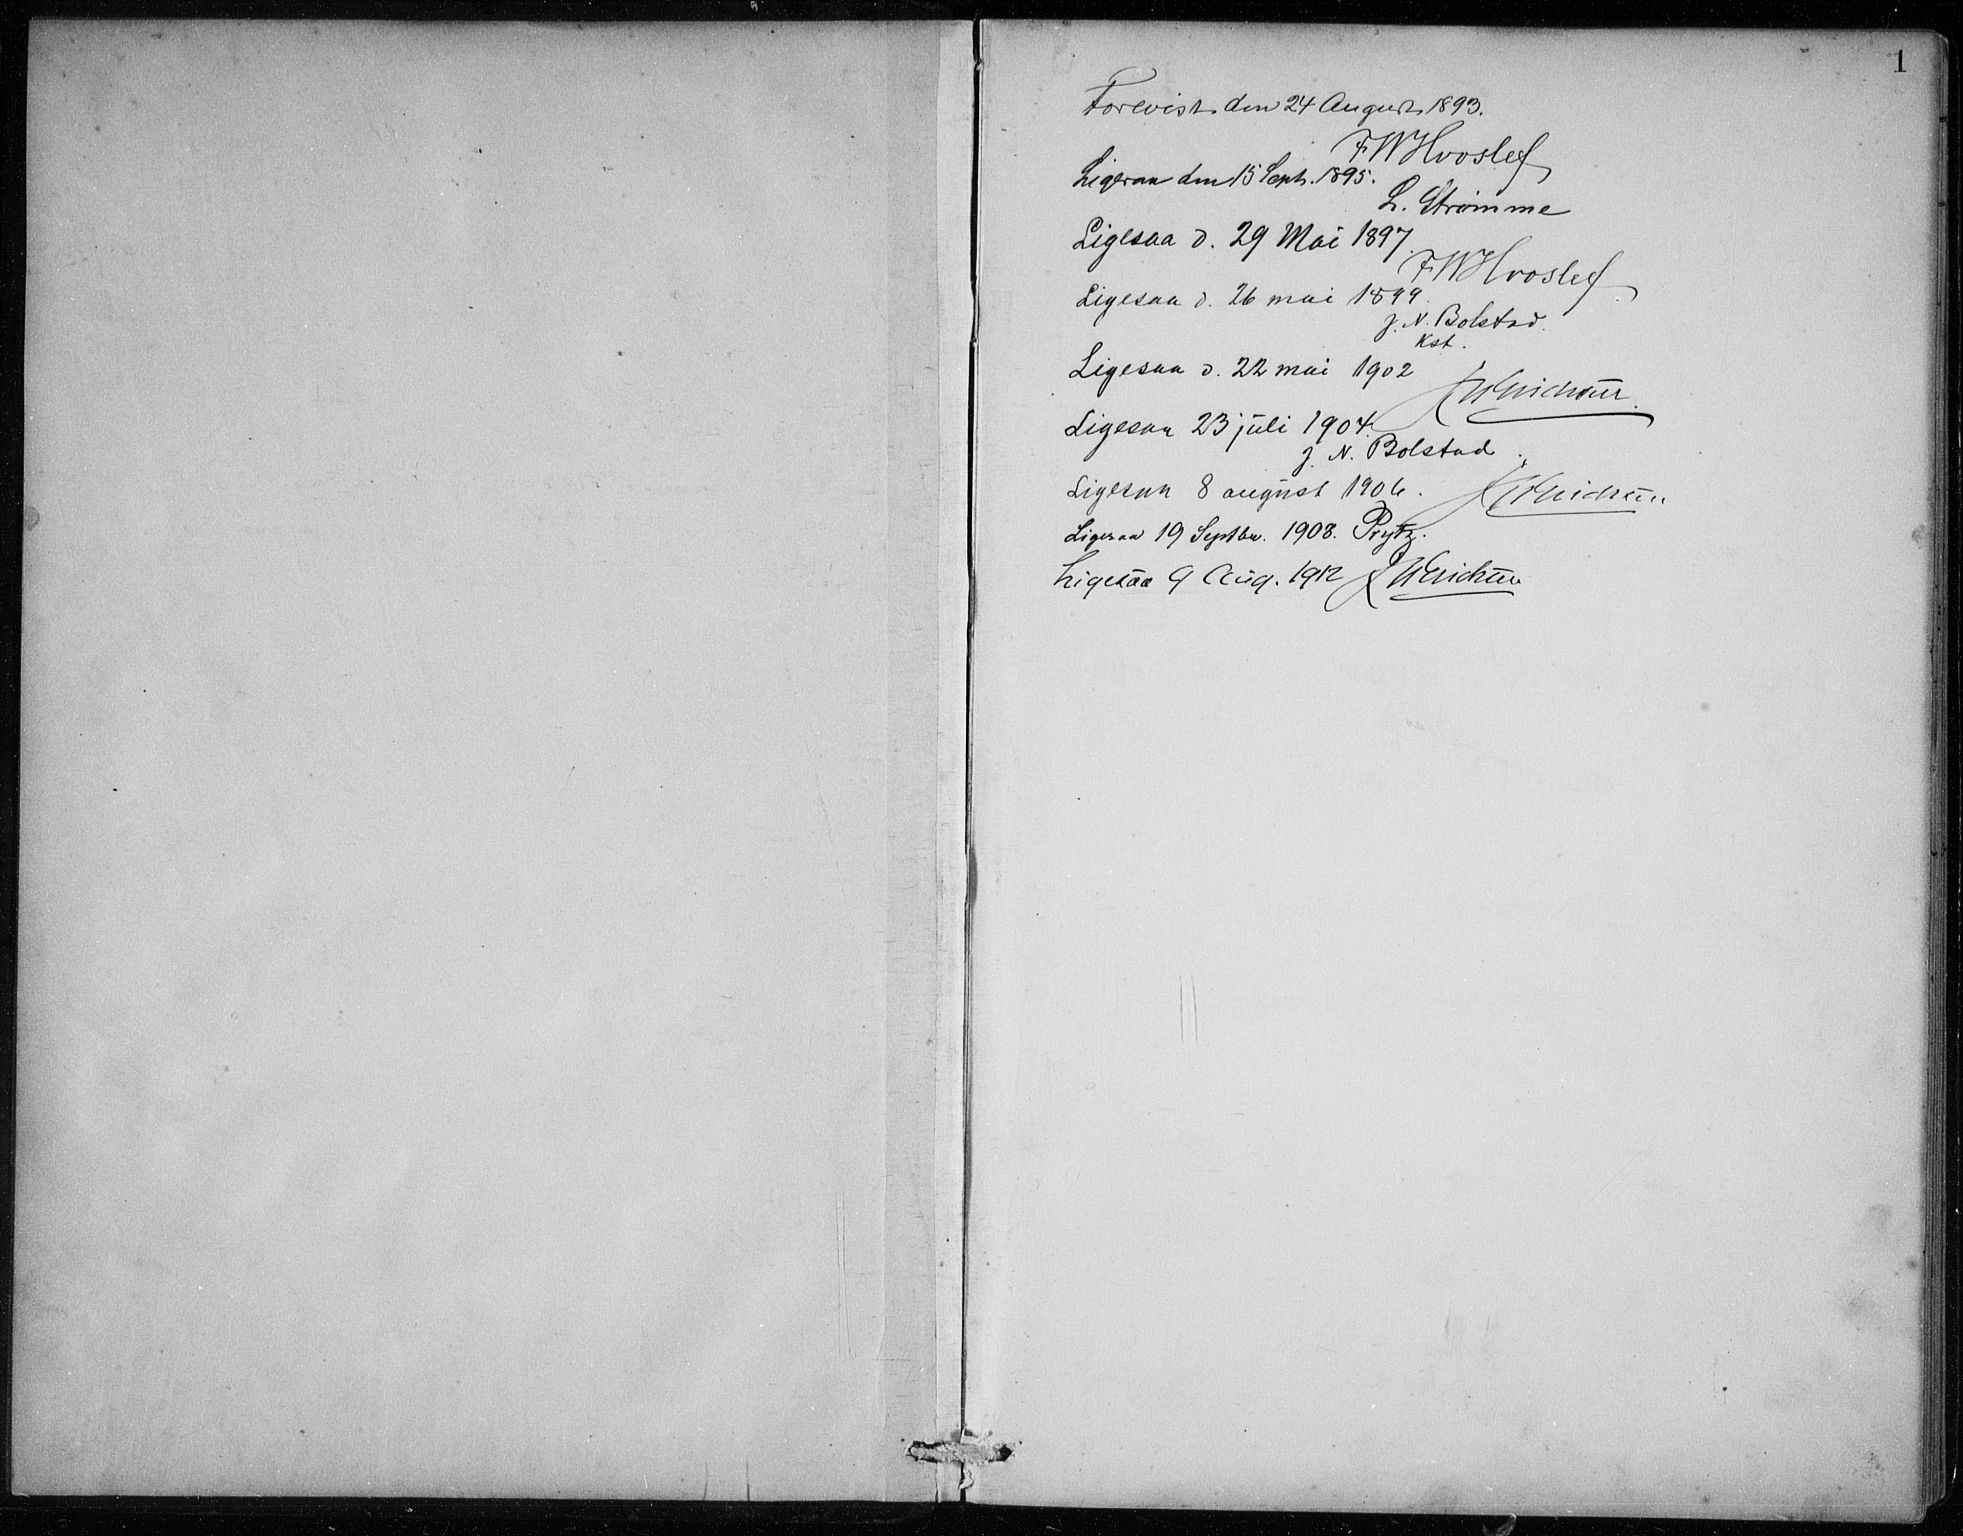 1
Forevist den 24 August 1893.
FWHvoslef
Ligesaa den 15 Sept. 1895.
L. Strømme
Ligesaa d. 29 Mai 1897.
FWHvoslef
Ligesaa d. 26 mai 1899.
J. N. Bolstad.
Kst.
Ligesaa d. 22 mai 1902
Ligesaa 23 juli 1904.
J. N. Bolstad
Ligesaa 8 august 1906.
Ligesaa 19 Septbr. 1908. Prytz.
Ligesaa 9 Aug. 1912